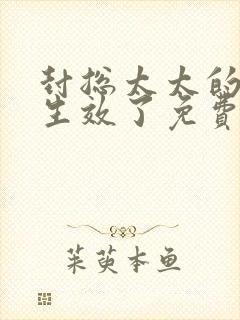 封总太太的
生效了免費
茱萸本鱼